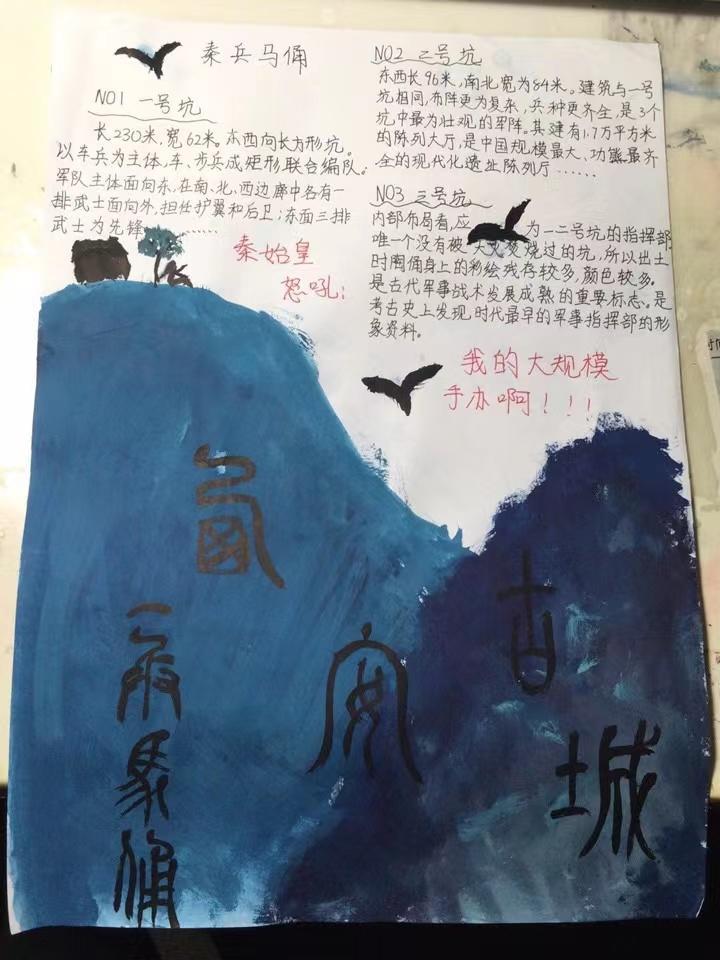 秦兵马俑
NO1 一号坑
长230米,宽62米。东西向长方形坑。
以车兵为主体,车、步兵成矩形,联合编队。
军队主体面向东,在南、北、西边廊中各有一
排武士面向外,担任护翼和后卫;东面三排
武士为先锋…………
NO2 二号坑
东西长96米,南北宽为84米。建筑与一号
坑相同,布阵更为复杂,兵种更齐全,是3个
坑中最为壮观的军阵。其建有1.7万平方米
的陈列大厅,是中国规模最大、功能最齐
全的现代化遗址陈列厅……
NO3 三号坑
内部布局看,应 为一二号坑的指挥部
唯一个没有被大火焚烧过的坑,所以出土
时陶俑身上的彩绘残存较多,颜色较多。
是古代军事战术发展成熟的重要标志。是
考古史上发现时代最早的军事指挥部的形
象资料。
秦始皇
怒吼:
我的大规模
手办啊!!!
古
城
安
兵
馬
俑